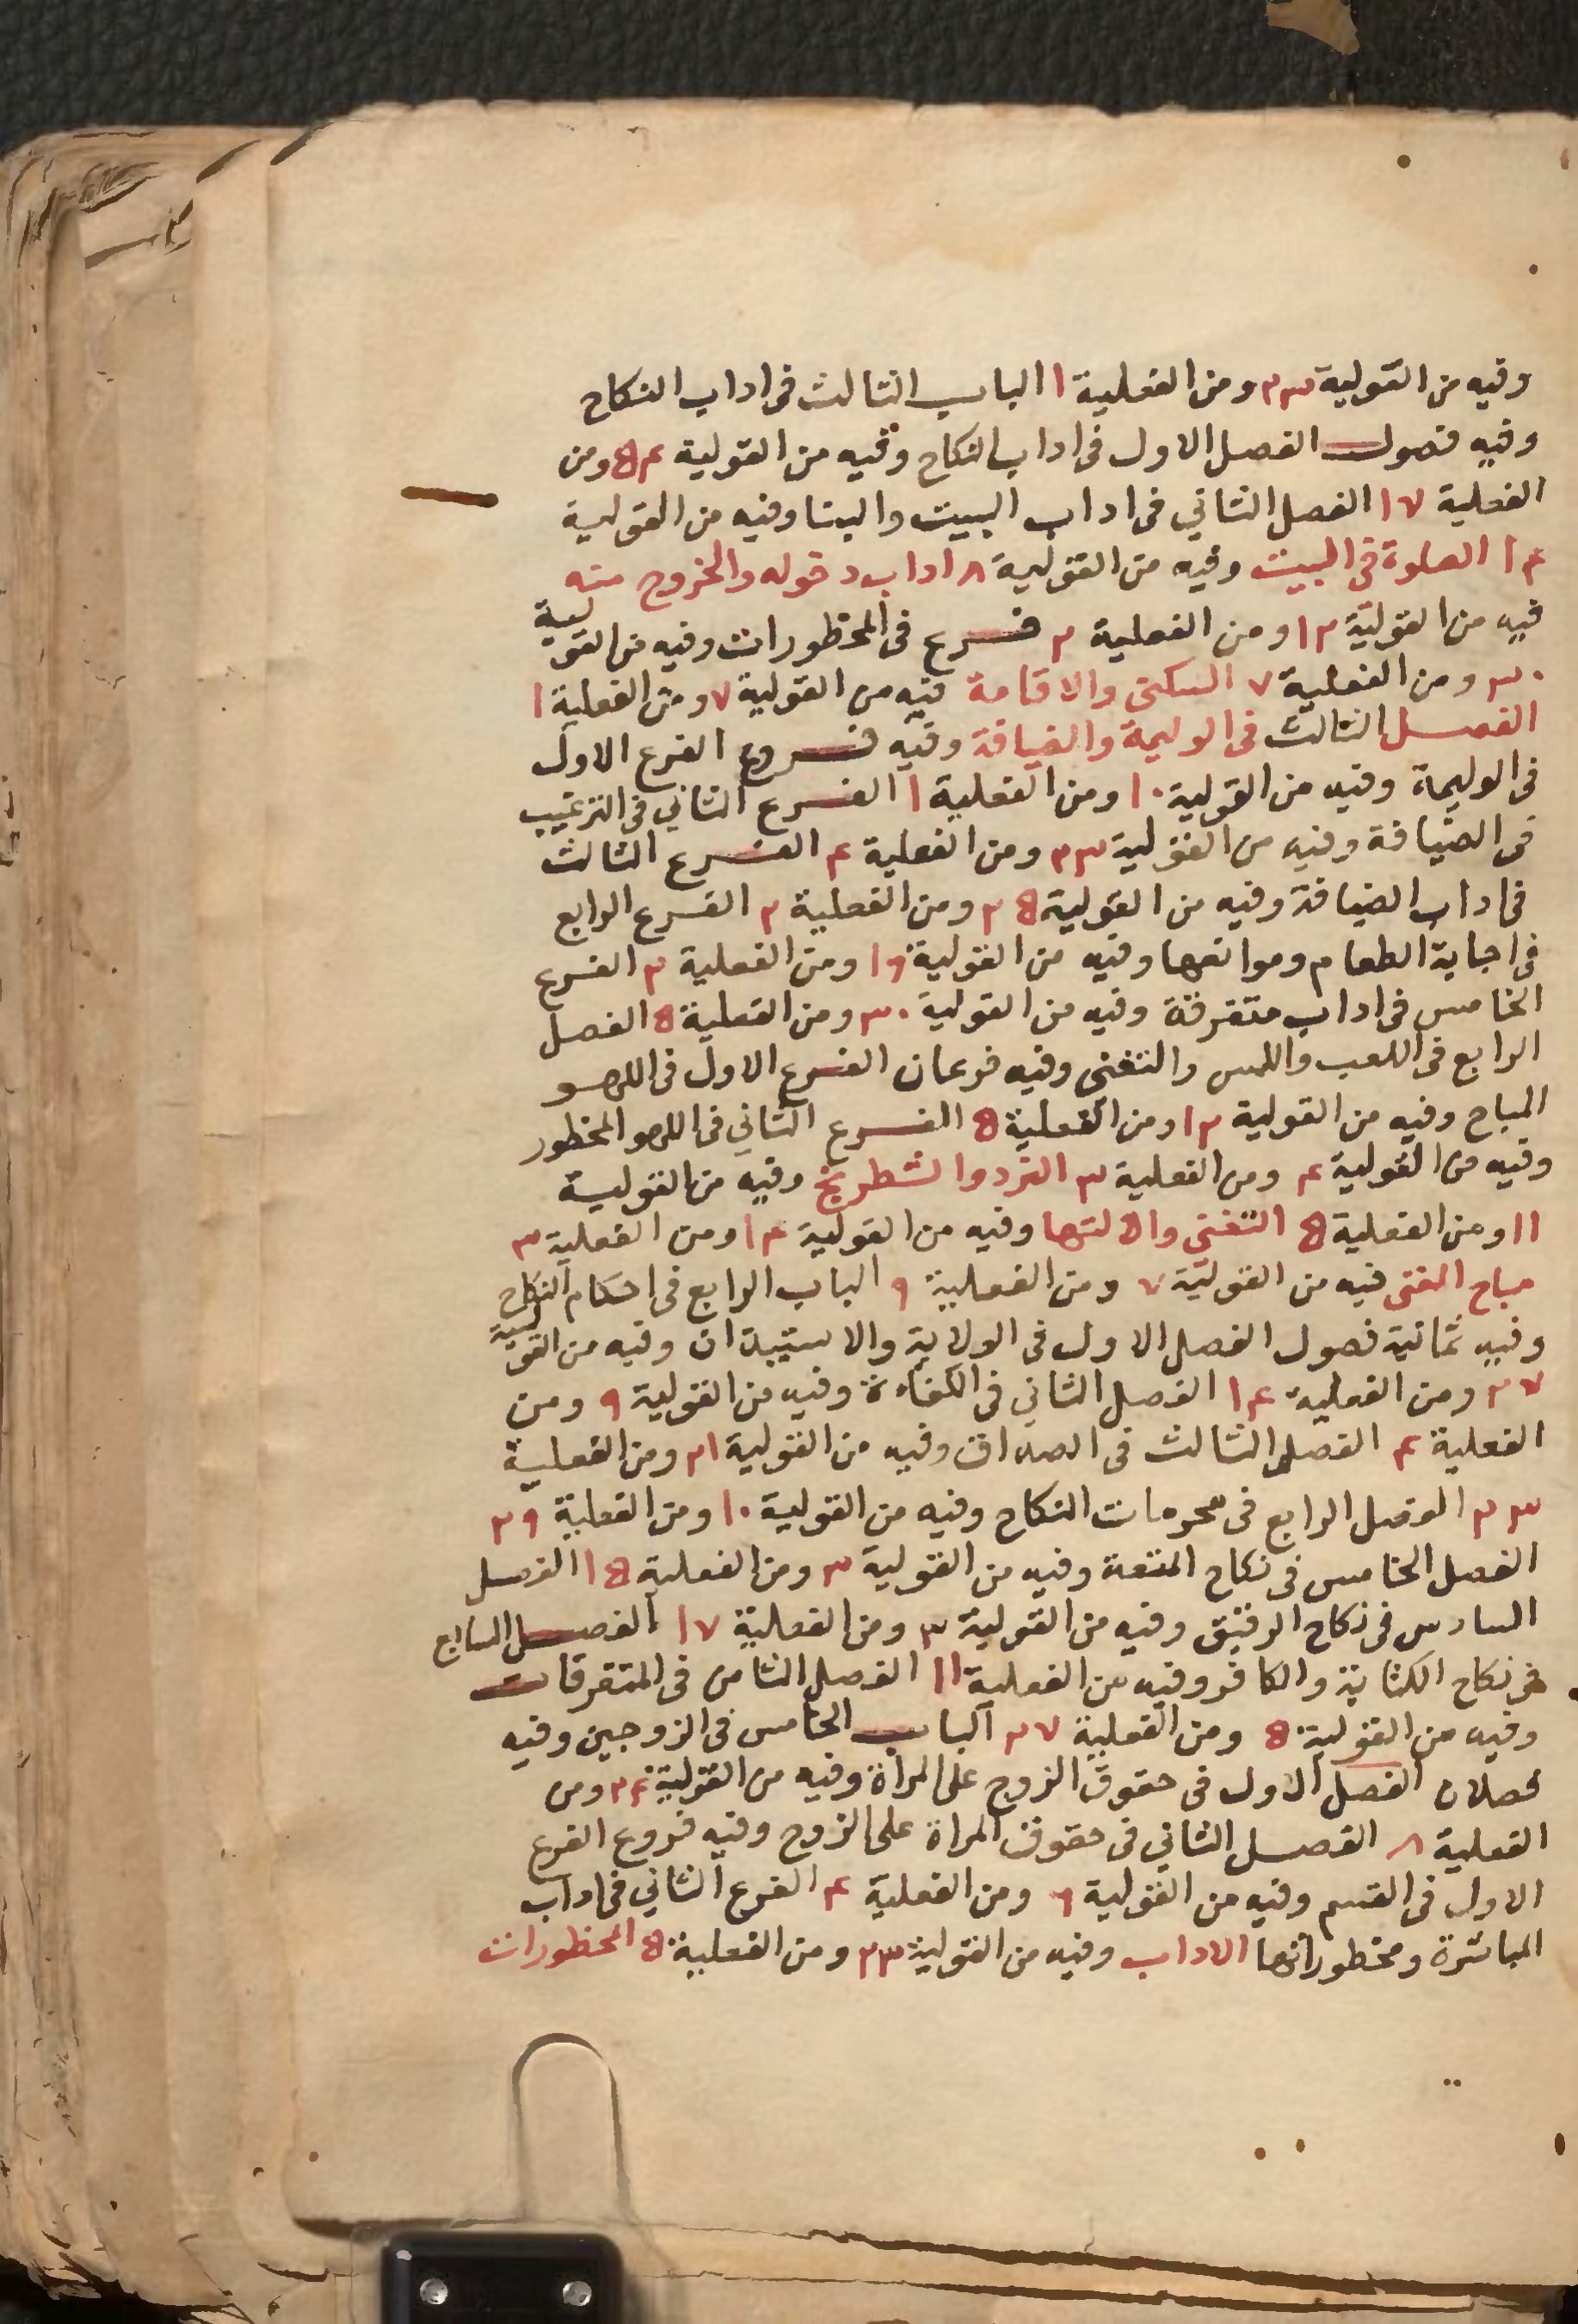 وفيه من القولية ٢٣ ومن الفعلية ١ الباب الثالث فى اداب النكاح
وفيه فصول الفصل الاول فى اداب النكاح وفيه من القولية ٥٤ ومن
الفعلية ١٧ الفصل الثاني فى اداب البيت والبنا وفيه من القولية
١٤ الصلوة فى البيت وفيه من القولية ٨ اداب دخوله والخروج منه
فيه من القولية ١٢ ومن الفعلية ٢ فرع فى المحظورات وفيه من القولية
٣٠ ومن الفعلية ٧ السكنى والاقامة فيه من القولية ٧ ومن الفعلية ١
الفصل الثالث فى الوليمة والضيافة وفيه فروع الفرع الاول
فى الوليمة وفيه من القولية ١٠ ومن الفعلية ١ الفرع الثاني فى الترغيب
فى الضيافة وفيه من القولية ٢٣ ومن الفعلية ٤ الفرع الثالث
فى اداب الضيافة وفيه من القولية ٢٥ ومن الفعلية ٢ الفرع الرابع
فى اجابة الطعام وموانعها وفيه من القولية ١٩ ومن الفعلية ٢ الفرع
الخامس فى اداب متفرقة وفيه من القولية ٣٠ ومن الفعلية ٥ الفصل
الرابع فى اللعب واللمس والتغنى وفيه فرعان الفرع الاول فى اللهو
المباح وفيه من القولية ١٢ ومن الفعلية ٥ الفرع الثاني فى اللهو المحظور
وفيه من القولية ٤ ومن الفعلية ٣ النرد والشطرنج وفيه من القولية
١١ ومن الفعلية ٥ التغنى والالتها وفيه من القولية ١٤ ومن الفعلية ٣
مباح المغنى فيه من القولية ٧ ومن الفعلية ٩ الباب الرابع فى احكام النكاح
وفيه ثمانية فصول الفصل الاول فى الولاية والاستيذان وفيه من القولية
٢٧ ومن الفعلية ١٤ الفصل الثاني فى الكفاءة وفيه من القولية ٩ ومن
الفعلية ٤ الفصل الثالث فى الصداق وفيه من القولية ٢١ ومن الفعلية
٢٣ الفصل الرابع فى محرمات النكاح وفيه من القولية ١٠ ومن الفعلية ٢٩
الفصل الخامس فى نكاح المتعة وفيه من القولية ٣ ومن الفعلية ١٥ الفصل
السادس فى نكاح الرقيق وفيه من القولية ٣ ومن الفعلية ١٧ الفصل السابع
فى نكاح الكتابية والكافر وفيه من الفعلية ١١ الفصل الثامن فى المتفرقات
وفيه من القولية ٥ ومن الفعلية ٢٧ الباب الخامس فى الزوجين وفيه
فصلان الفصل الاول فى حقوق الزوج على المرأة وفيه من القولية ٢٤ ومن
الفعلية ٨ الفصل الثاني فى حقوق المراة على الزوج وفيه فروع الفرع
الاول فى القسم وفيه من القولية ٦ ومن الفعلية ٤ الفرع الثاني فى اداب
المباشرة ومحظوراتها الاداب وفيه من القولية ٢٣ ومن الفعلية ٥ المحظورات